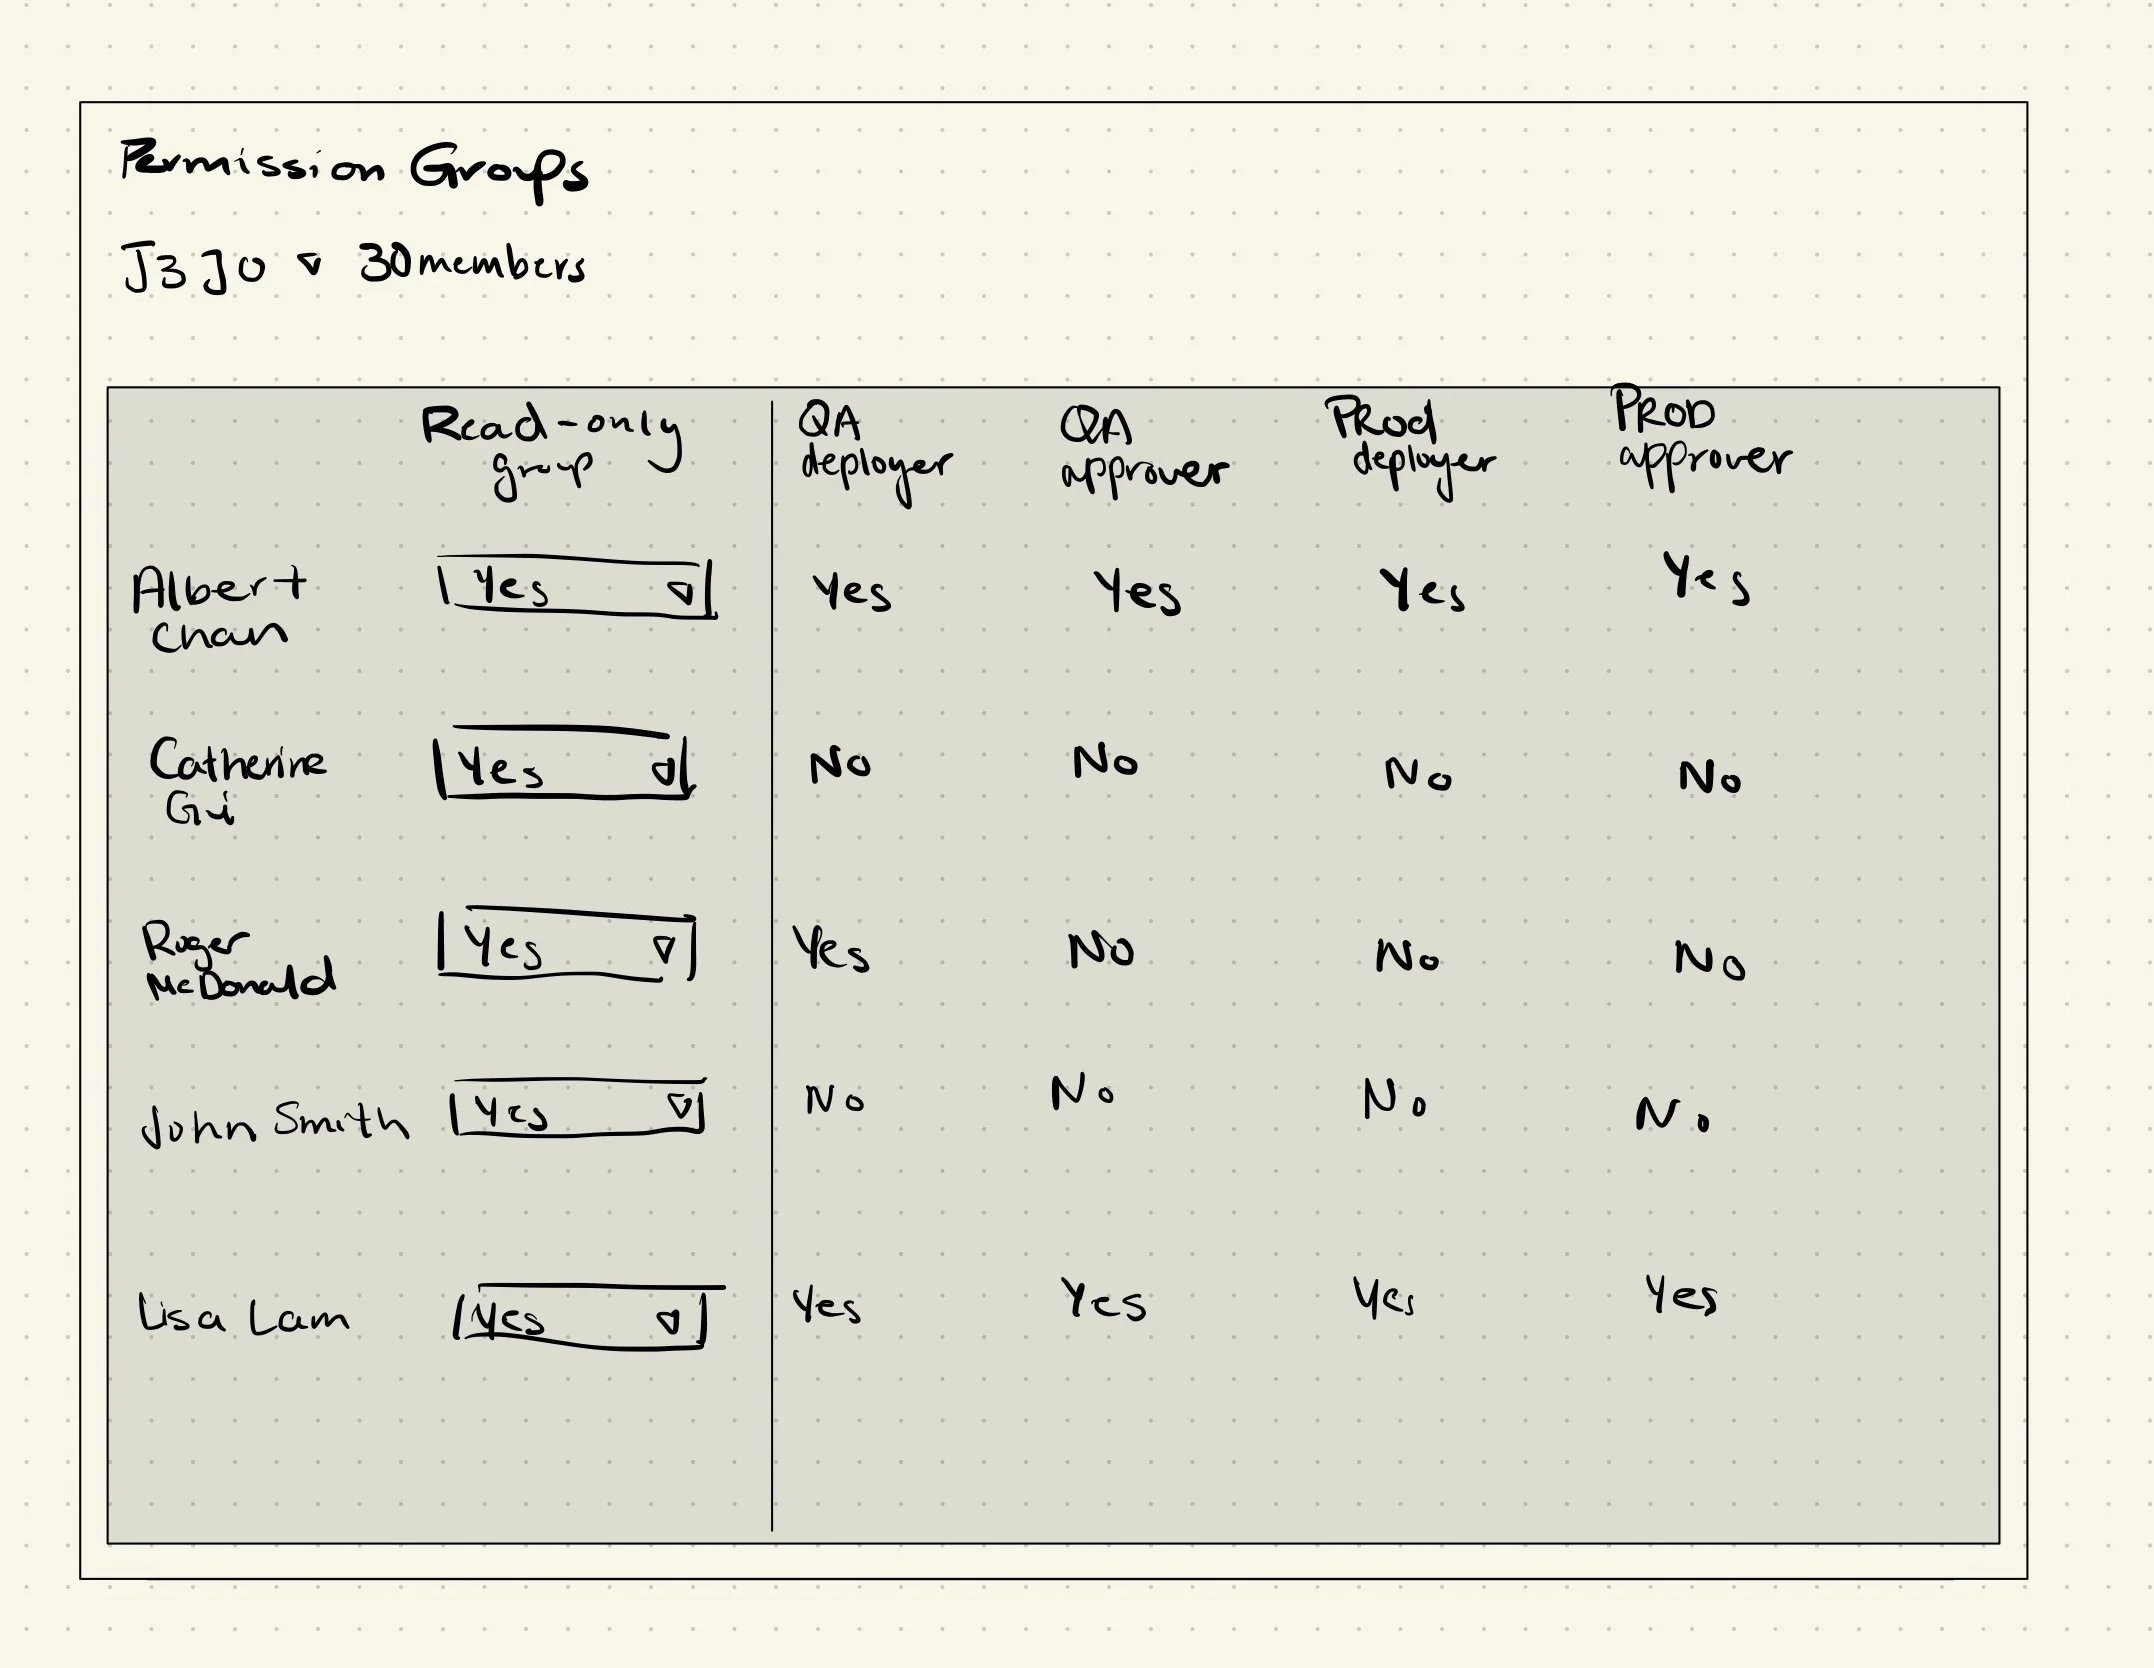 Permission Groups
J3J0 ▿ 30 members
Read-only group
QA deployer
QA approver
PRod deployer
PROD approver
Albert Chan
Yes ▿
Yes
Yes
Yes
Yes
Catherine Gui
Yes ▿
No
No
No
No
Roger McDonald
Yes ▿
Yes
No
No
No
John Smith
Yes ▿
No
No
No
No
Lisa Lam
Yes ▿
Yes
Yes
Yes
Yes